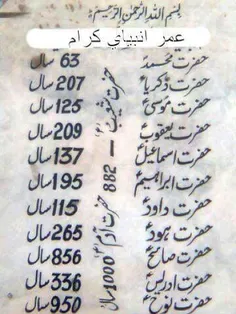 بسم اللہ الرحمن الرحیم
عمر انبیاي کرام
حضرت محمدؐ 63 سال
حضرت ذکریاؑ 207 سال
حضرت موسیٰؑ 125 سال
حضرت یعقوبؑ 209 سال
حضرت اسماعیلؑ 137 سال
حضرت ابراہیمؑ 195 سال
حضرت داودؑ 115 سال
حضرت ہودؑ 265 سال
حضرت صالحؑ 856 سال
حضرت ادریسؑ 336 سال
حضرت نوحؑ 950 سال
حضرت شعیبؑ — 882
حضرت آدمؑ 1000 سال